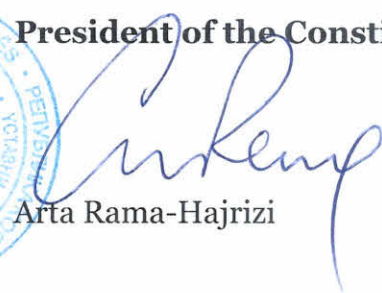 President of the Consti
Arta Rama-Hajrizi